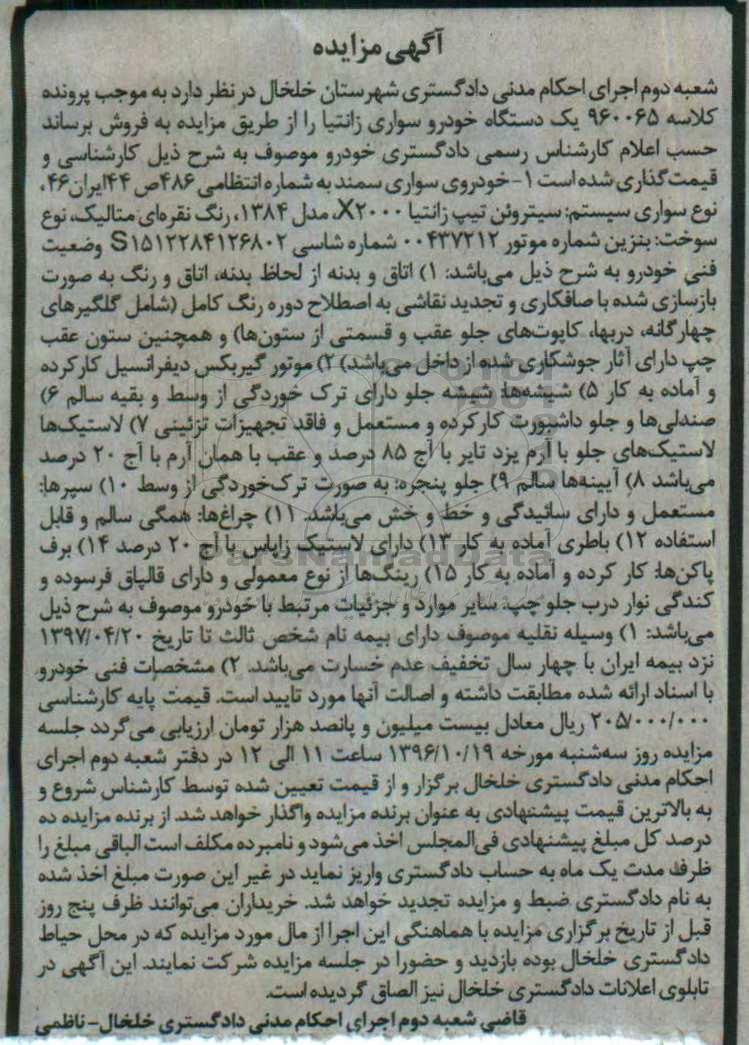 آگهی مزایده
شعبه دوم اجرای احکام مدنی دادگستری شهرستان خلخال در نظر دارد به موجب پرونده
کلاسه ۹۶۰۰۶۵ یک دستگاه خودرو سواری زانتیا را از طریق مزایده به فروش برساند
حسب اعلام کارشناس رسمی دادگستری خودرو موصوف به شرح ذیل کارشناسی و
قیمت‌گذاری شده است ۱- خودروی سواری سمند به شماره انتظامی ۴۸۶ص۴۴ایران۴۶،
نوع سواری سیستم: سیتروئن تیپ زانتیا X۲۰۰۰، مدل ۱۳۸۴، رنگ نقره‌ای متالیک، نوع
سوخت: بنزین شماره موتور ۰۰۴۳۷۲۱۲ شماره شاسی S۱۵۱۲۲۸۴۱۲۶۸۰۲ وضعیت
فنی خودرو به شرح ذیل می‌باشد: ۱) اتاق و بدنه از لحاظ بدنه، اتاق و رنگ به صورت
بازسازی شده با صافکاری و تجدید نقاشی به اصطلاح دوره رنگ کامل (شامل گلگیرهای
چهارگانه، دربها، کاپوت‌های جلو عقب و قسمتی از ستون‌ها) و همچنین ستون عقب
چپ دارای آثار جوشکاری شده از داخل می‌باشد) ۲) موتور گیربکس دیفرانسیل کارکرده
و آماده به کار ۵) شیشه‌ها: شیشه جلو دارای ترک خوردگی از وسط و بقیه سالم ۶)
صندلی‌ها و جلو داشبورت کارکرده و مستعمل و فاقد تجهیزات تزئینی ۷) لاستیک‌ها
لاستیک‌های جلو با آرم یزد تایر با آج ۸۵ درصد و عقب با همان آرم با آج ۲۰ درصد
می‌باشد ۸) آیینه‌ها سالم ۹) جلو پنجره: به صورت ترک‌خوردگی از وسط ۱۰) سپرها:
مستعمل و دارای سائیدگی و خط و خش می‌باشد. ۱۱) چراغ‌ها: همگی سالم و قابل
استفاده ۱۲) باطری آماده به کار ۱۳) دارای لاستیک زاپاس با آج ۲۰ درصد ۱۴) برف
پاکن‌ها: کار کرده و آماده به کار ۱۵) رینگ‌ها از نوع معمولی و دارای قالپاق فرسوده و
کندگی نوار درب جلو چپ. سایر موارد و جزئیات مرتبط با خودرو موصوف به شرح ذیل
می‌باشد: ۱) وسیله نقلیه موصوف دارای بیمه نام شخص ثالث تا تاریخ ۱۳۹۷/۰۴/۲۰
نزد بیمه ایران با چهار سال تخفیف عدم خسارت می‌باشد. ۲) مشخصات فنی خودرو
با اسناد ارائه شده مطابقت داشته و اصالت آنها مورد تایید است. قیمت پایه کارشناسی
۲۰۵/۰۰۰/۰۰۰ ریال معادل بیست میلیون و پانصد هزار تومان ارزیابی می‌گردد جلسه
مزایده روز سه‌شنبه مورخه ۱۳۹۶/۱۰/۱۹ ساعت ۱۱ الی ۱۲ در دفتر شعبه دوم اجرای
احکام مدنی دادگستری خلخال برگزار و از قیمت تعیین شده توسط کارشناس شروع و
به بالاترین قیمت پیشنهادی به عنوان برنده مزایده واگذار خواهد شد. از برنده مزایده ده
درصد کل مبلغ پیشنهادی فی‌المجلس اخذ می‌شود و نامبرده مکلف است الباقی مبلغ را
ظرف مدت یک ماه به حساب دادگستری واریز نماید در غیر این صورت مبلغ اخذ شده
به نام دادگستری ضبط و مزایده تجدید خواهد شد. خریداران می‌توانند ظرف پنج روز
قبل از تاریخ برگزاری مزایده با هماهنگی این اجرا از مال مورد مزایده که در محل حیاط
دادگستری خلخال بوده بازدید و حضورا در جلسه مزایده شرکت نمایند. این آگهی در
تابلوی اعلانات دادگستری خلخال نیز الصاق گردیده است.
قاضی شعبه دوم اجرای احکام مدنی دادگستری خلخال- ناظمی
ParsNamadData